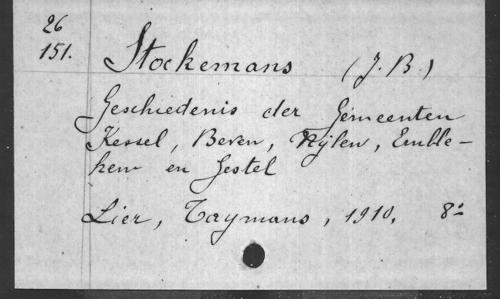 26
151.
Stockemans (J. B.)
Geschiedenis der Gemeenten
Kessel, Beven, Nijlen, Emble-
hem en Gestel
Lier, Taymans, 1910. 8°